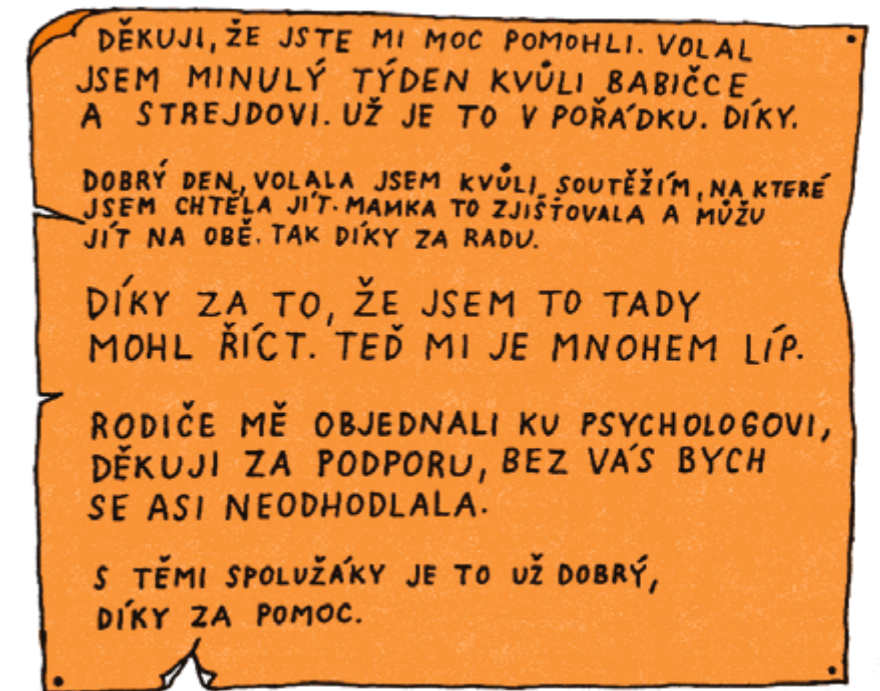 DĚKUJI, ŽE JSTE MI MOC POMOHLI. VOLAL
JSEM MINULÝ TÝDEN KVŮLI BABIČCE
A STREJDOVI. UŽ JE TO V POŘÁDKU. DÍKY.
DOBRÝ DEN, VOLALA JSEM KVŮLI SOUTĚŽÍM, NA KTERÉ
JSEM CHTĚLA JÍT. MAMKA TO ZJIŠŤOVALA A MŮŽU
JÍT NA OBĚ. TAK DÍKY ZA RADU.
DÍKY ZA TO, ŽE JSEM TO TADY
MOHL ŘÍCT. TEĎ MI JE MNOHEM LÍP.
RODIČE MĚ OBJEDNALI KU PSYCHOLOGOVI,
DĚKUJI ZA PODPORU, BEZ VÁS BYCH
SE ASI NEODHODLALA.
S TĚMI SPOLUŽÁKY JE TO UŽ DOBRÝ,
DÍKY ZA POMOC.